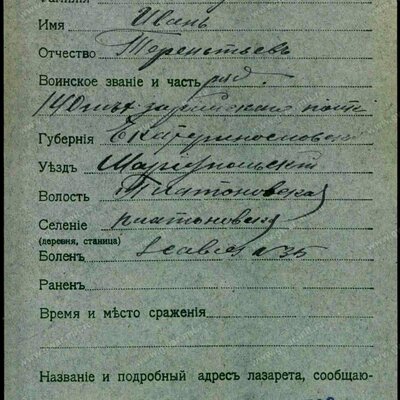 Фамилия
Имя Иванъ
Отчество Терентьевъ
Воинское званіе и часть ряд.
140го пѣх. Зарайскаго полка
Губернія Екатеринославской
Уѣздъ Маріупольскій
Волость Платоновская
Селеніе Платоновская
(деревня, станица)
Боленъ
Раненъ
Время и мѣсто сраженія
Названіе и подробный адресъ лазарета, сообщаю-